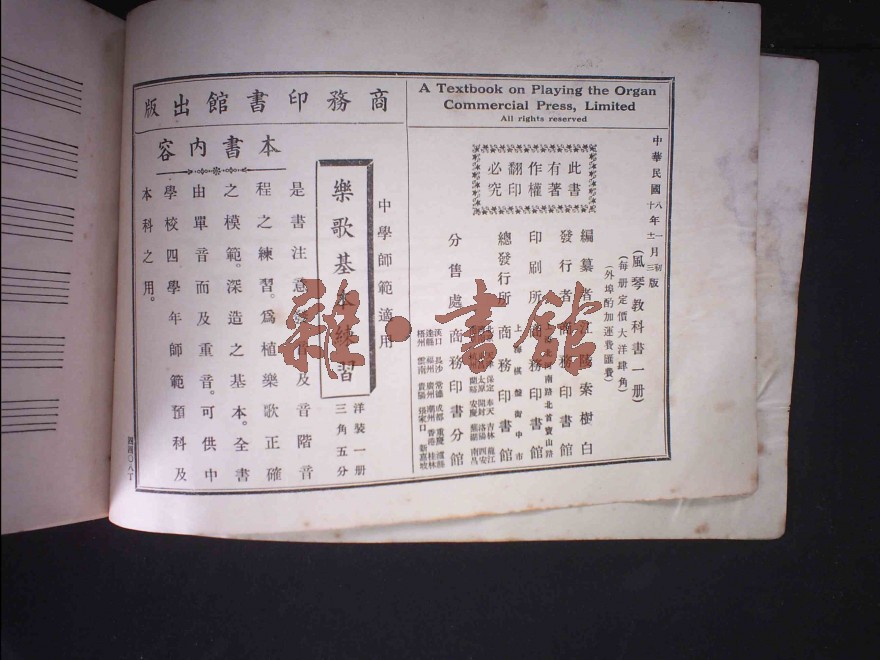 A Textbook on Playing the Organ
Commercial Press, Limited
All rights reserved
中華民國
年
月
初
版
(風琴教科書一册)
(每册定價大洋肆角)
(外埠酌加運費匯費)
此書
有著
作權
翻印
必究
編纂者 江陵 索樹白
發行者 商務印書館
印刷所 商務印書館
總發行所 商務印書館
上海棋盤街中市
分售處 商務印書分館
商務印書館出版
本書内容
中學師範適用
樂歌基本練習
洋裝一册
三角五分
是書注意 音及音階音
程之練習。爲植樂歌正確
之模範。深造之基本。全書
由單音而及重音。可供中
學校四學年師範預科及
本科之用。
雜·書館